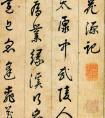 花源記
太康中武陵人
為業緣溪行忘
忽逢桃